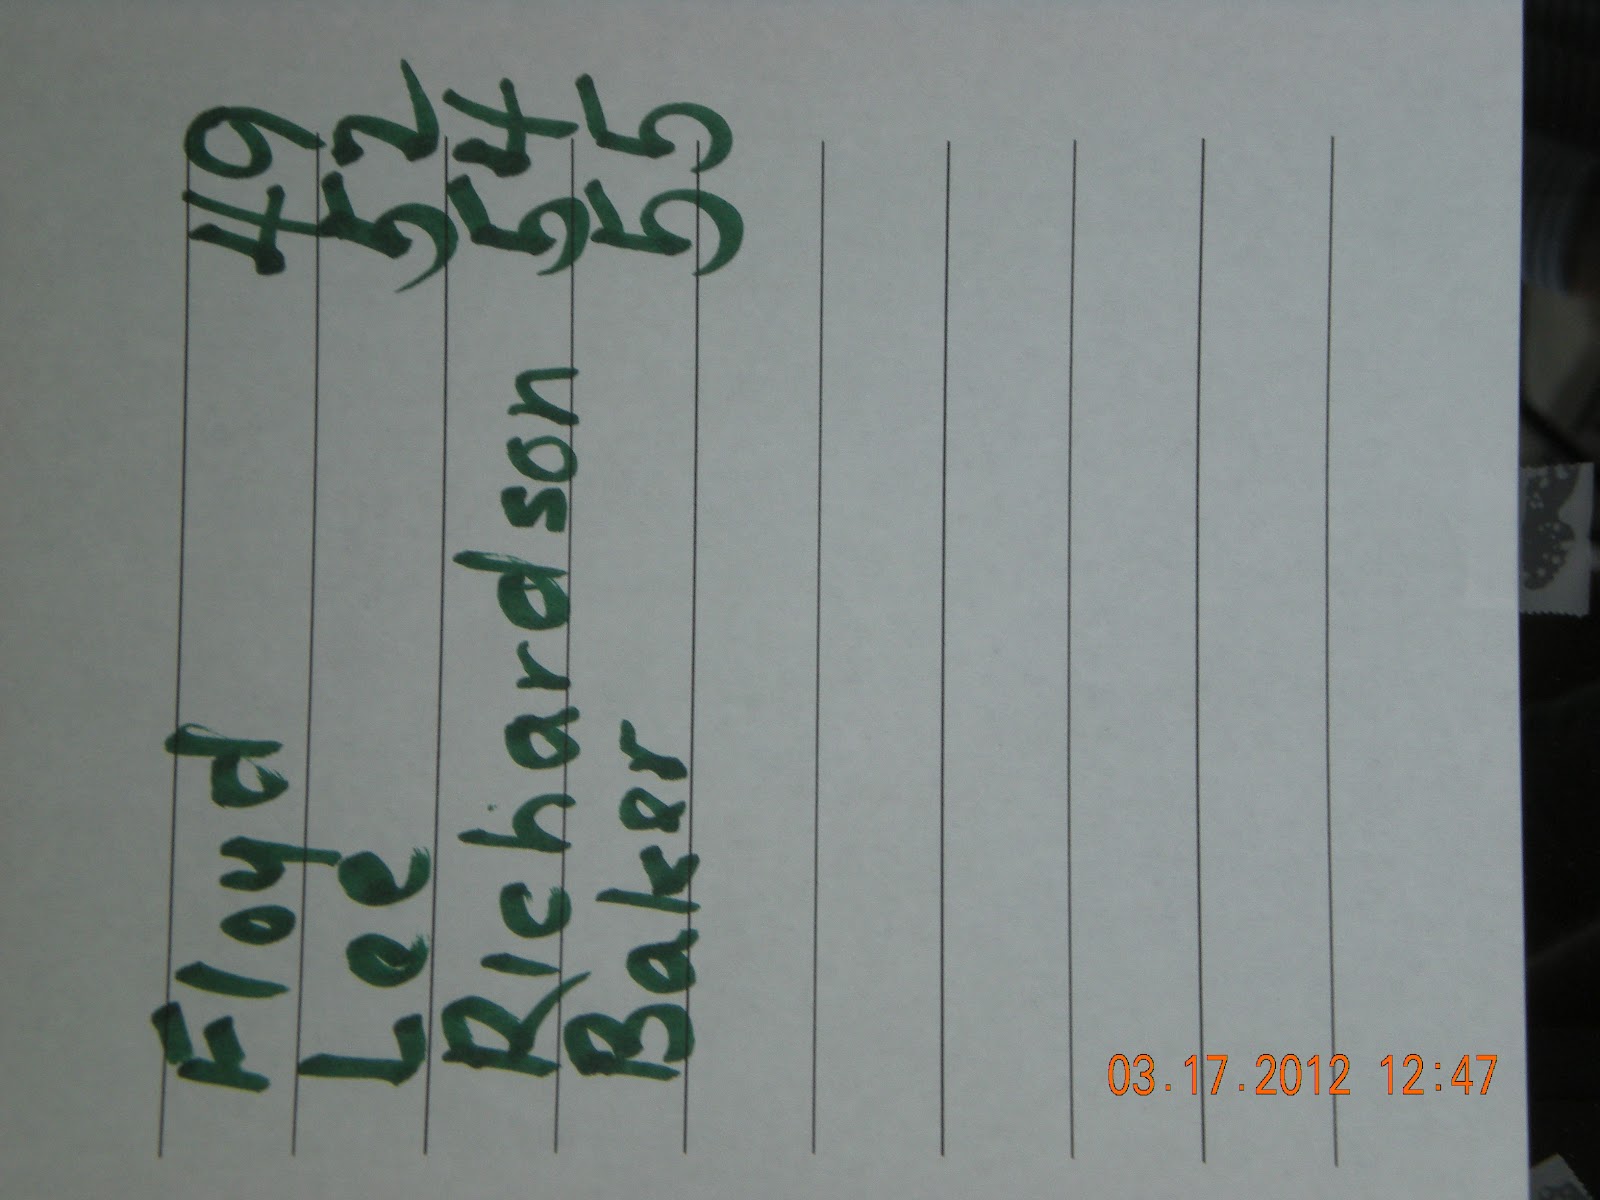 Floyd 49
Lee 52
Richardson 54
Baker 55
03.17.2012 12:47